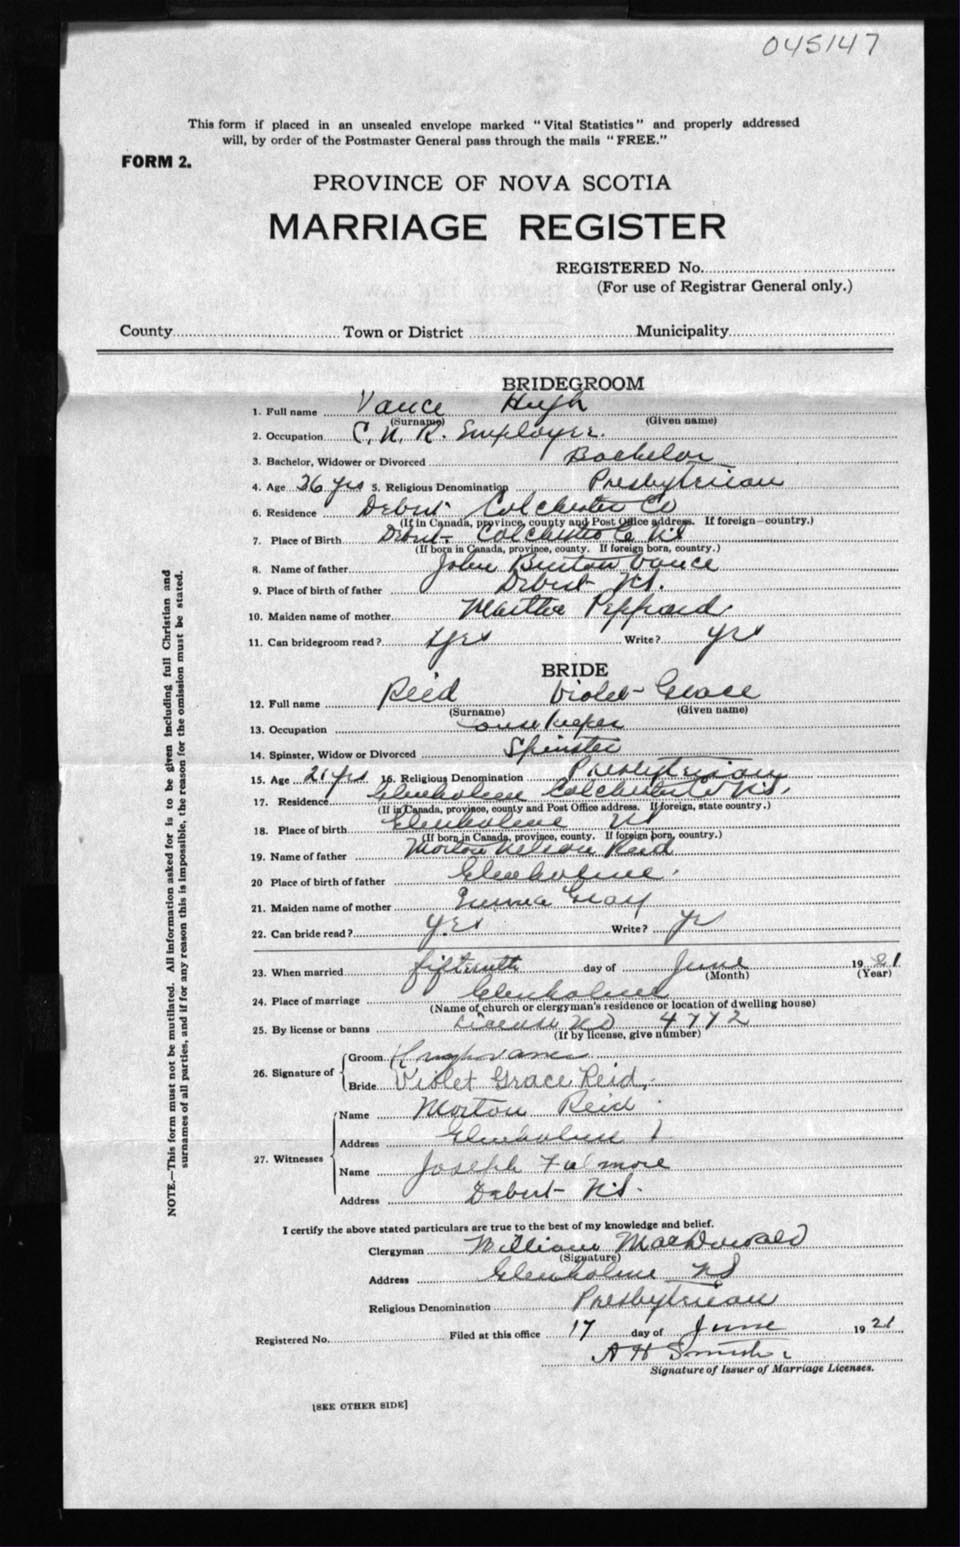 045147
This form if placed in an unsealed envelope marked "Vital Statistics" and properly addressed
will, by order of the Postmaster General pass through the mails "FREE."
FORM 2.
PROVINCE OF NOVA SCOTIA
MARRIAGE REGISTER
REGISTERED No.
(For use of Registrar General only.)
County Town or District Municipality
BRIDEGROOM
1. Full name Vance Hugh
(Surname) (Given name)
2. Occupation C.N.R. Employee.
3. Bachelor, Widower or Divorced Bachelor
4. Age 26 yrs 5. Religious Denomination Presbyterian
6. Residence Debert Colchester Co
(If in Canada, province, county and Post Office address. If foreign—country.)
7. Place of Birth Debert Colchester Co NS
(If born in Canada, province, county. If foreign born, country.)
8. Name of father John Burton Vance
9. Place of birth of father Debert NS.
10. Maiden name of mother Martha Peppard
11. Can bridegroom read? Yes Write? yes
BRIDE
12. Full name Reid Violet Grace
(Surname) (Given name)
13. Occupation Housekeeper
14. Spinster, Widow or Divorced Spinster
15. Age 21 yrs 16. Religious Denomination Presbyterian
17. Residence Glenholme Colchester Co NS.
(If in Canada, province, county and Post Office address. If foreign, state country.)
18. Place of birth Glenholme NS
(If born in Canada, province, county. If foreign born, country.)
19. Name of father Morton Nelson Reid
20 Place of birth of father Glenholme.
21. Maiden name of mother Gray
22. Can bride read? Yes Write?
23. When married fifteenth day of June 1921
(Month) (Year)
24. Place of marriage Glenholme
(Name of church or clergyman's residence or location of dwelling house)
25. By license or banns License No 4772
(If by license, give number)
26. Signature of
Groom Hugh Vance
Bride Violet Grace Reid.
27. Witnesses
Name Morton Reid
Address Glenholme
Name Joseph
Address Debert NS.
I certify the above stated particulars are true to the best of my knowledge and belief.
Clergyman William MacDonald
(Signature)
Address Glenholme NS
Religious Denomination Presbyterian
Registered No. Filed at this office 17 day of June 1921
A H Smith
Signature of Issuer of Marriage Licenses.
[SEE OTHER SIDE]
NOTE.—This form must not be mutilated. All information asked for is to be given including full Christian and
surnames of all parties, and if for any reason this is impossible, the reason for the omission must be stated.